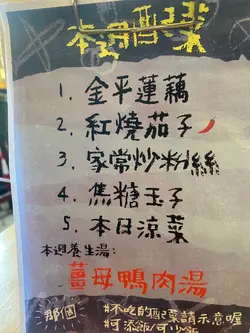 本週配菜
1. 金平蓮藕
2. 紅燒茄子
3. 家常炒粉絲
4. 焦糖玉子
5. 本日涼菜
本週養生湯:
薑母鴨肉湯
那個
#不吃的配菜請示意喔
#可添飯/可少飯